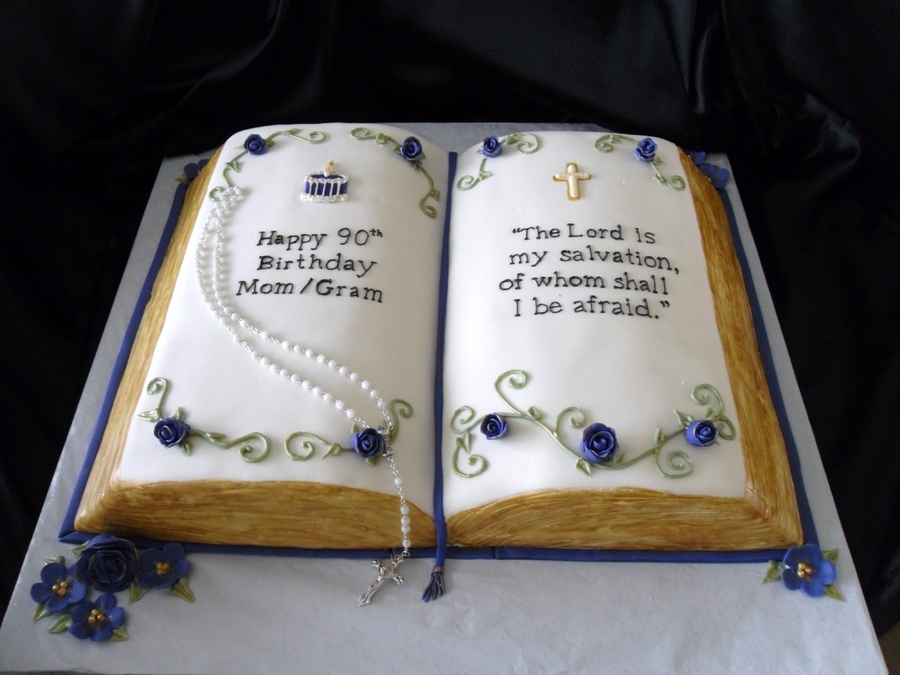 Happy 90th
Birthday
Mom/Gram
"The Lord is
my salvation,
of whom shall
I be afraid."